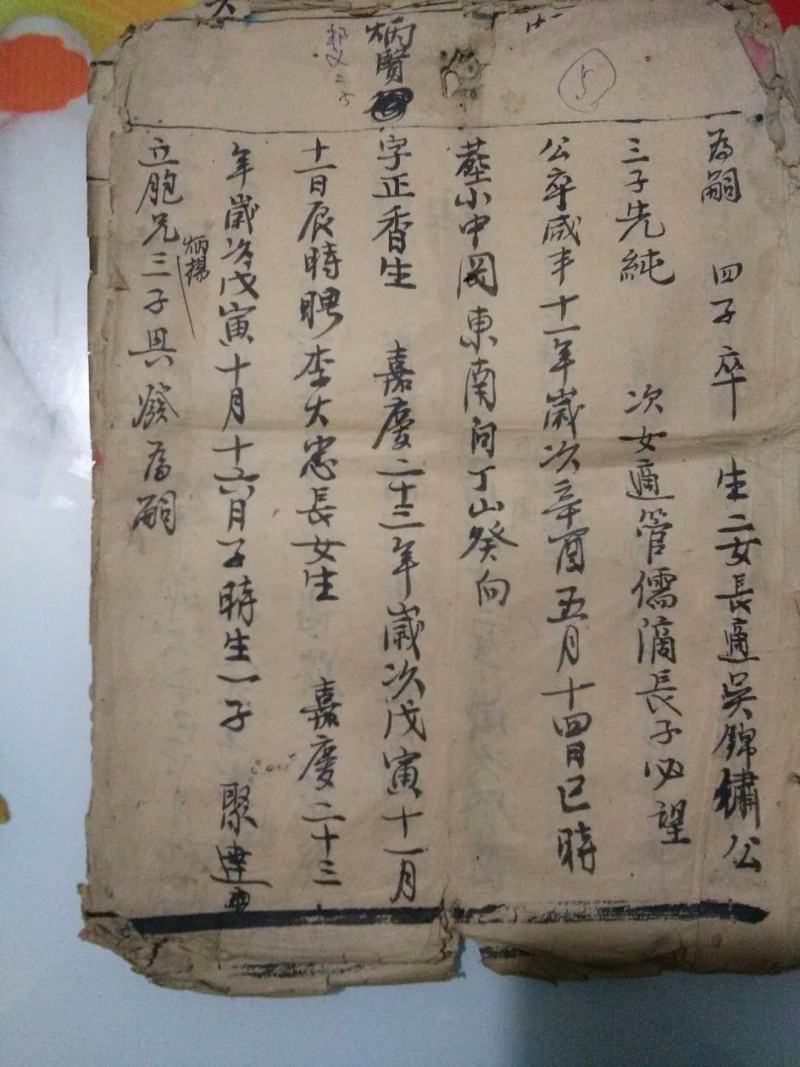 5
炳賢
為嗣 四子卒 生二女長適吳錦繡公
三子先純 次女適管儒滴長子必望
公卒咸丰十一年歲次辛酉五月十四日巳時
塟小中罔東南向丁山癸向
字正香生 嘉慶二十三年歲次戊寅十一月
十一日辰時聘李大忠長女生 嘉慶二十三
年歲次戊寅十月十六日子時生一子 聚建
立胞兄炳揚三子具發為嗣